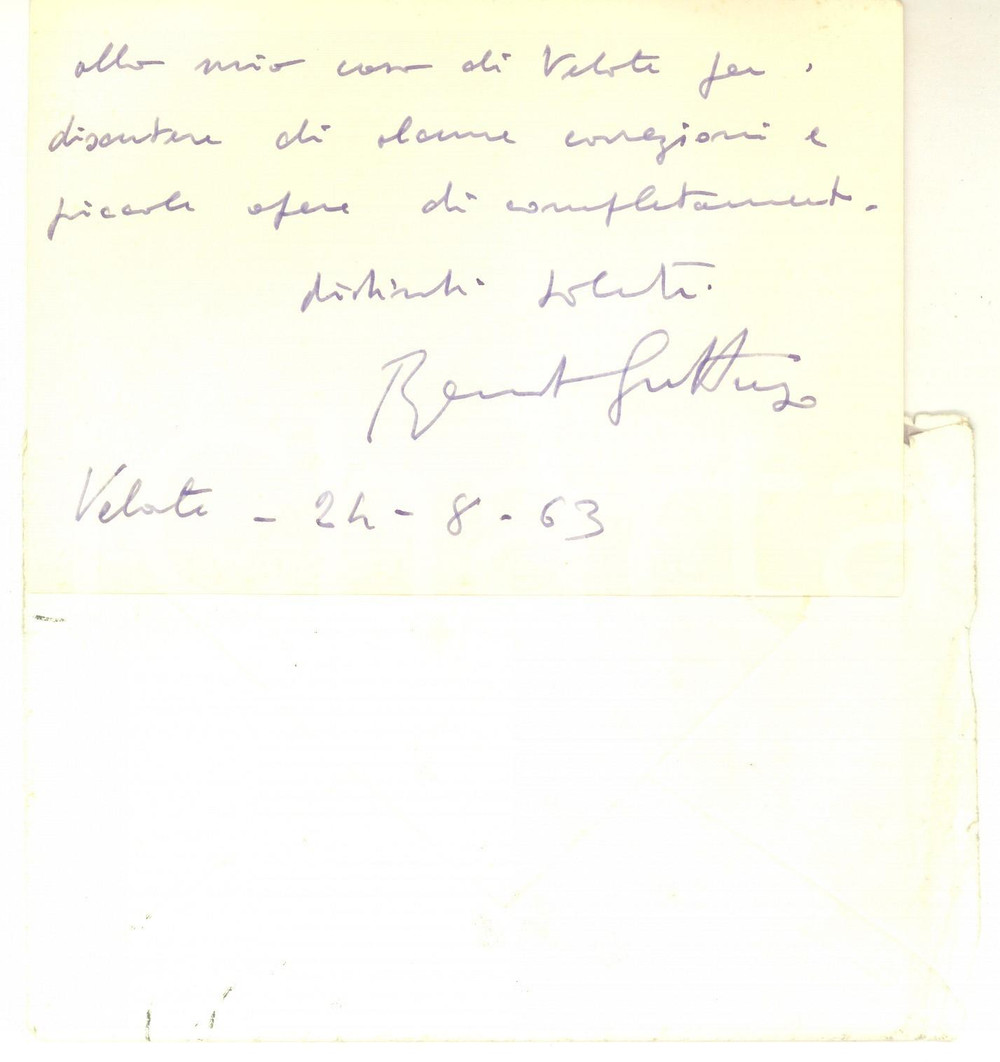 alla mia casa di Velate per
discutere di alcune correzioni e
piccole opere di completamento.
distinti saluti.
Renato Guttuso
Velate - 24 - 8 - 63